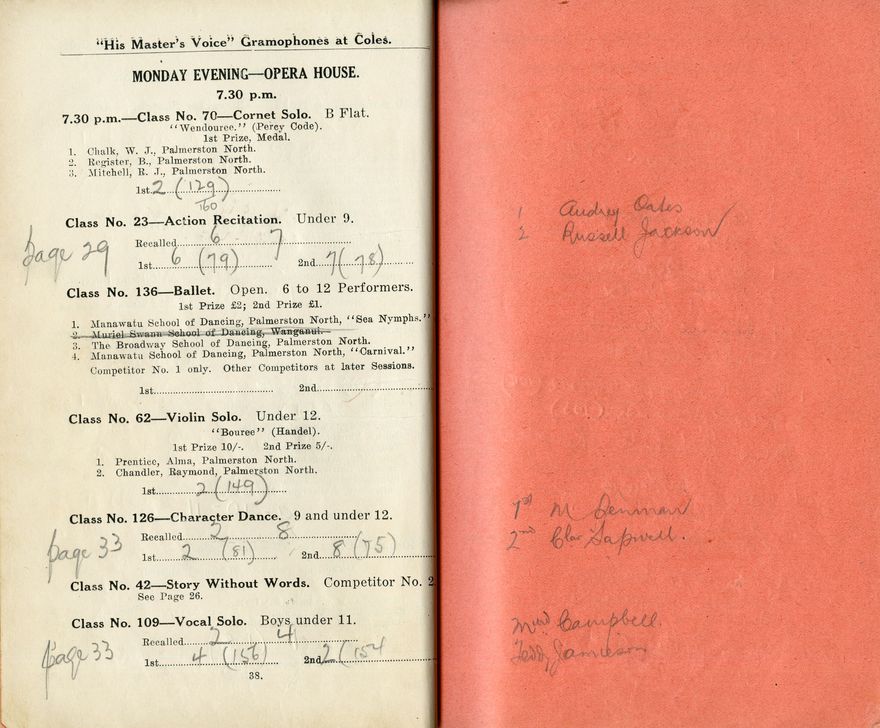 "His Master's Voice" Gramophones at Coles.
MONDAY EVENING—OPERA HOUSE.
7.30 p.m.
7.30 p.m.—Class No. 70—Cornet Solo. B Flat.
"Wendouree." (Percy Code).
1st Prize, Medal.
1. Chalk, W. J., Palmerston North.
2. Register, B., Palmerston North.
3. Mitchell, R. J., Palmerston North.
1st 2 (129)
160
Class No. 23—Action Recitation. Under 9.
Recalled 6 7
page 29
1st 6 (79) 2nd 7 (78)
Class No. 136—Ballet. Open. 6 to 12 Performers.
1st Prize £2; 2nd Prize £1.
1. Manawatu School of Dancing, Palmerston North, "Sea Nymphs."
2. Muriel Swann School of Dancing, Wanganui.
3. The Broadway School of Dancing, Palmerston North.
4. Manawatu School of Dancing, Palmerston North, "Carnival."
Competitor No. 1 only. Other Competitors at later Sessions.
1st 2nd
Class No. 62—Violin Solo. Under 12.
"Bouree" (Handel).
1st Prize 10/-. 2nd Prize 5/-.
1. Prentice, Alma, Palmerston North.
2. Chandler, Raymond, Palmerston North.
1st 2 (149)
Class No. 126—Character Dance. 9 and under 12.
Recalled 2 8
page 33
1st 2 (81) 2nd 8 (75)
Class No. 42—Story Without Words. Competitor No. 2
See Page 26.
Class No. 109—Vocal Solo. Boys under 11.
Recalled 2 4
page 33
1st 4 (156) 2nd 2 (154
38.
1 Audrey Oates
2 Russell Jackson
1st M Denman
2nd Tapwell.
Campbell.
Teddy Jamieson